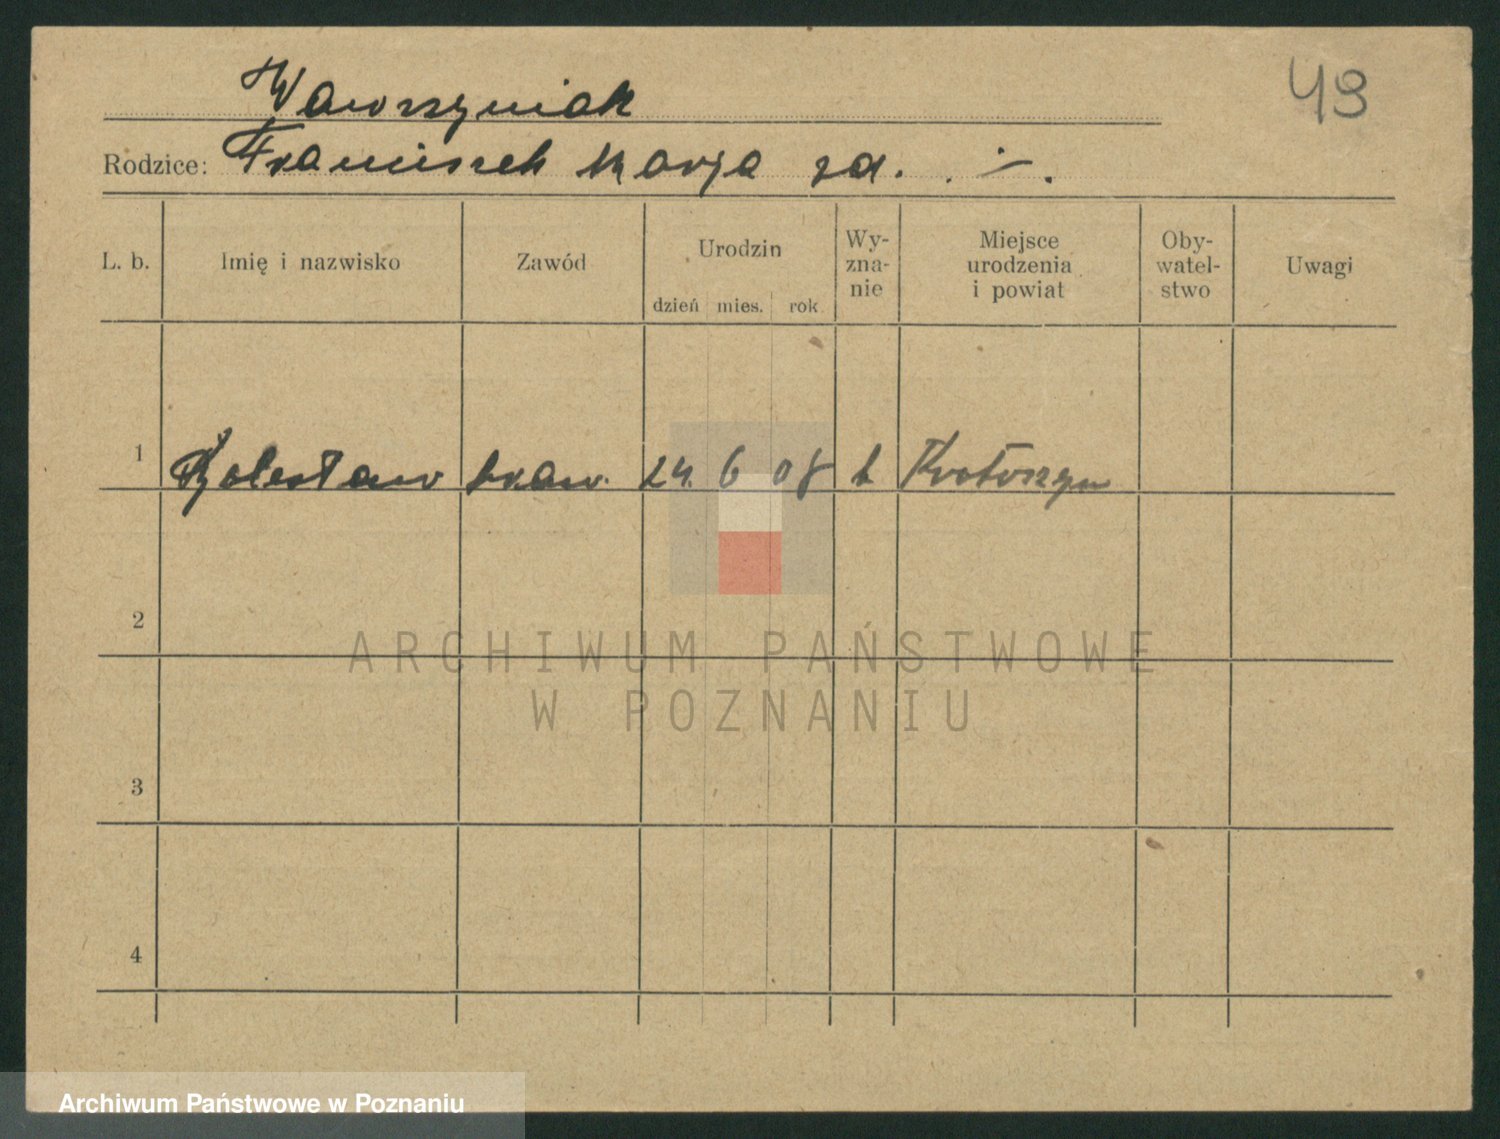 Wawrzyniak
49
Rodzice: Franciszek Marja zd. . -- .
L. b. Imię i nazwisko Zawód Urodzin dzień mies. rok Wy-zna-nie Miejsce urodzenia i powiat Oby-watel-stwo Uwagi
1 Bolesław kraw. 24. 6 08 k Krotoszyn
2
ARCHIWUM PAŃSTWOWE
W POZNANIU
3
4
Archiwum Państwowe w Poznaniu